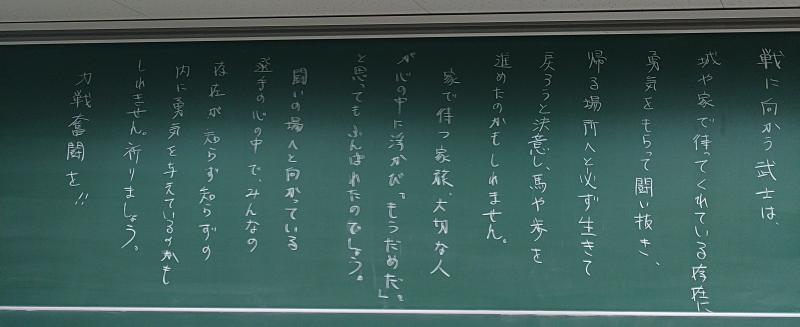 戦に向かう武士は、
城や家で待ってくれている存在に
勇気をもらって闘い抜き、
帰る場所へと必ず生きて
戻ろうと決意し、馬や歩を
進めたのかもしれません。
家で待つ家族、大切な人
が心の中に浮かび、"もうだめだ"
と思ってもふんばれたのでしょう。
闘いの場へと向かっている
選手の心の中で、みんなの
存在が知らず知らずの
内に勇気を与えているのかも
しれません。祈りましょう。
力戦奮闘を!!